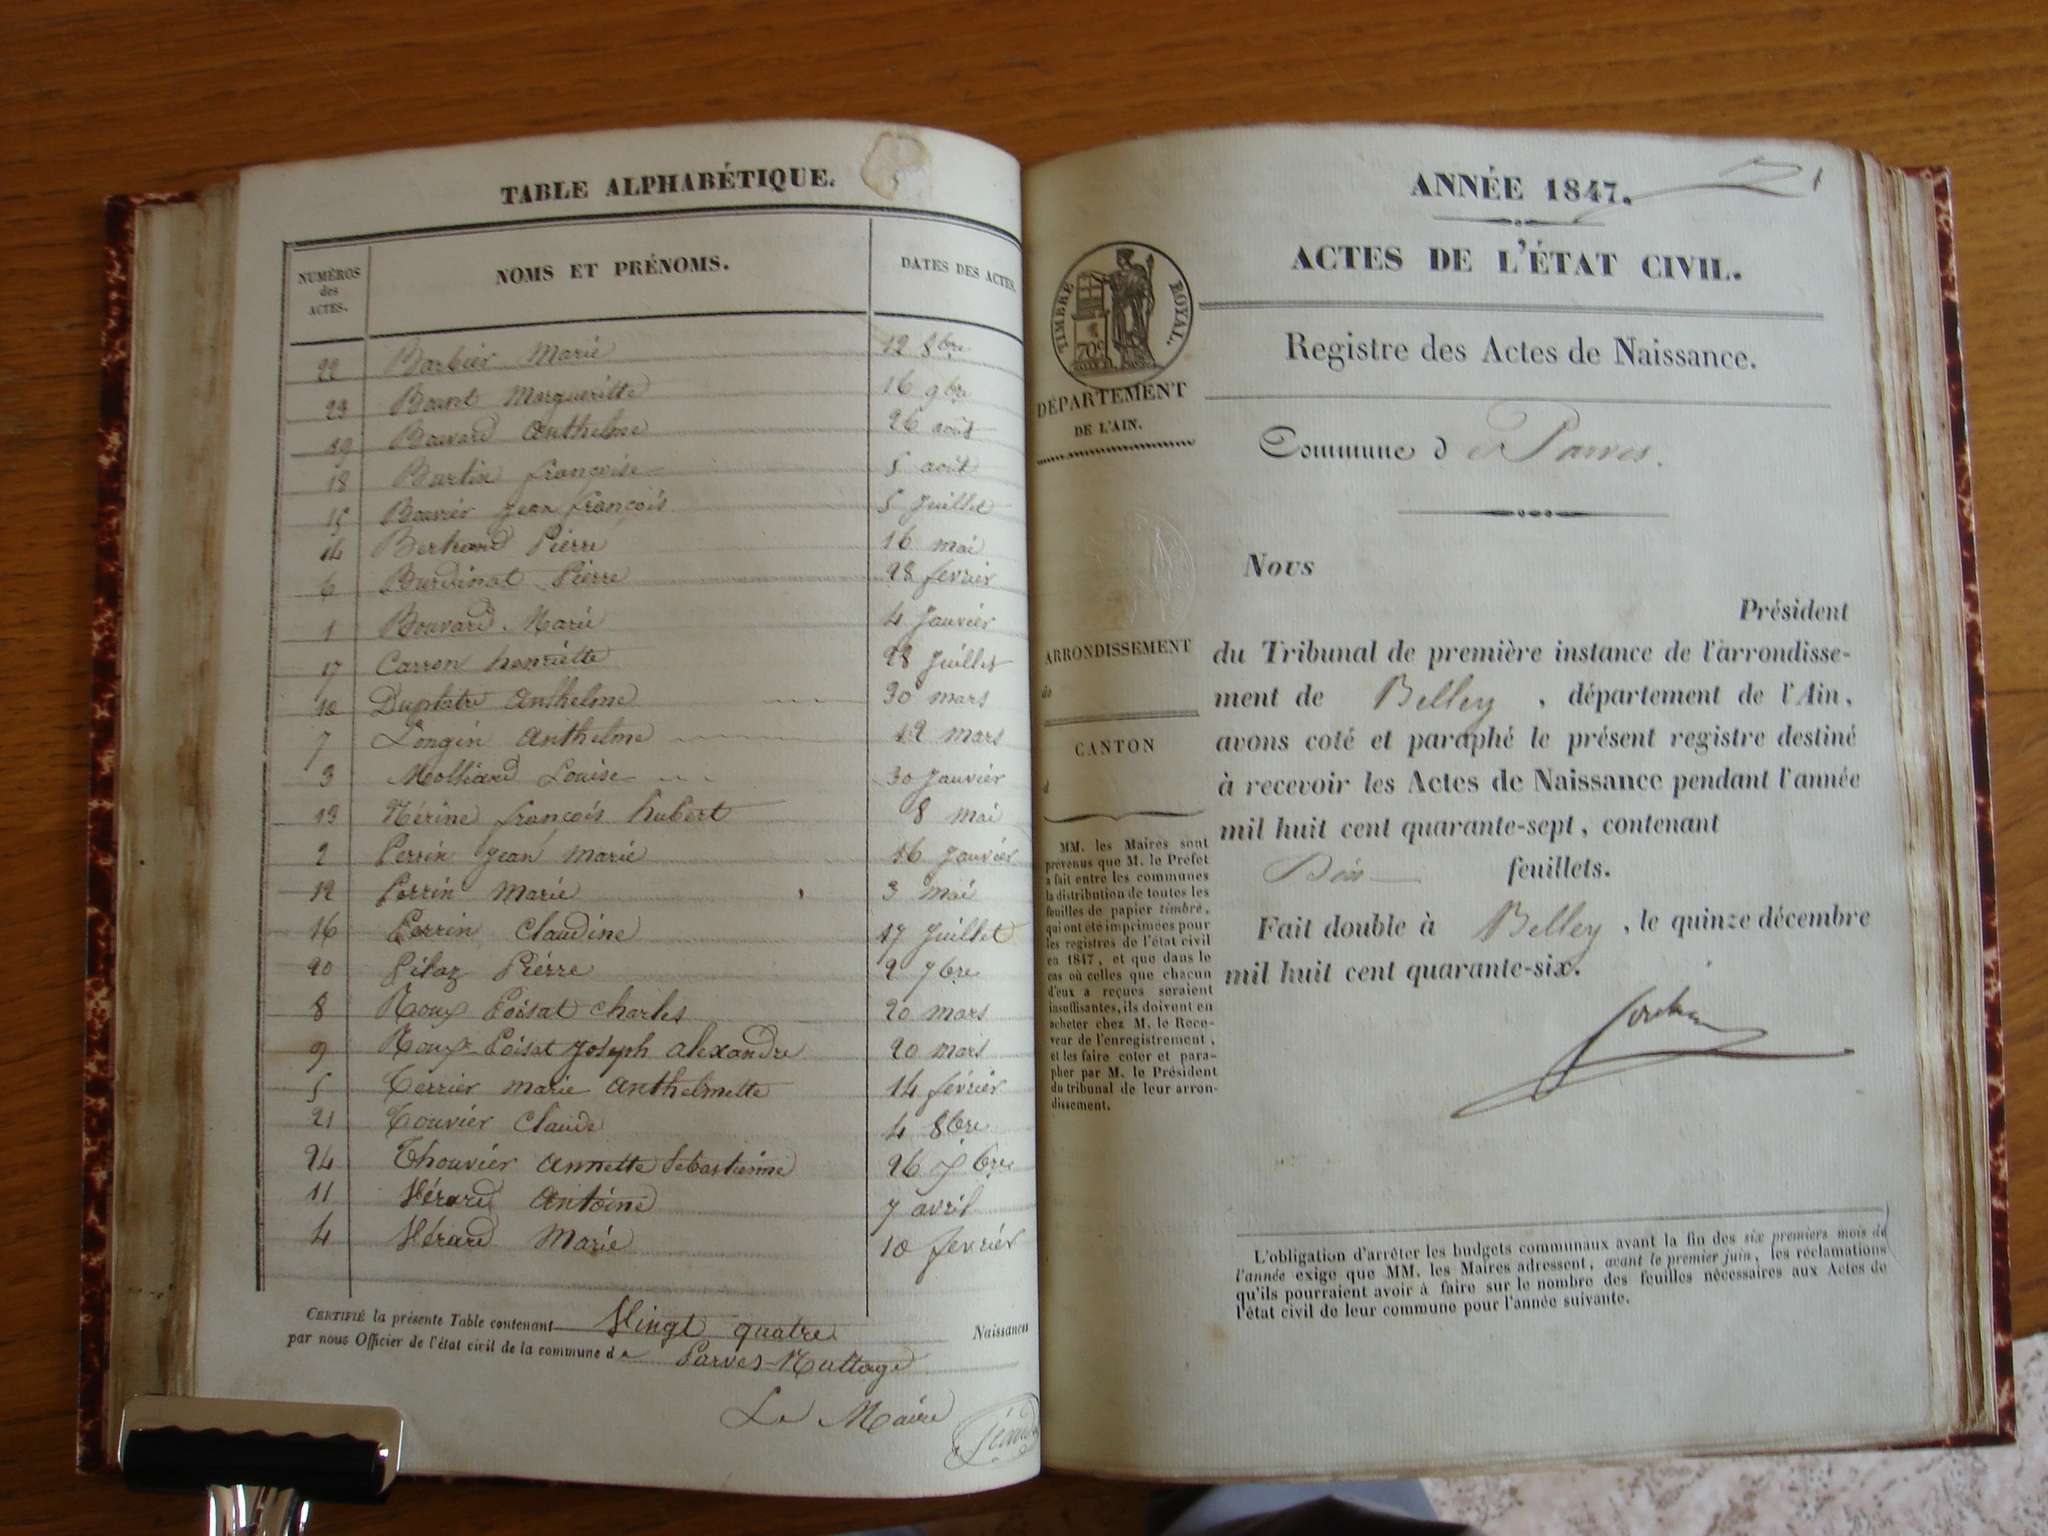 TABLE ALPHABÉTIQUE.
NUMÉROS des ACTES. NOMS ET PRÉNOMS. DATES DES ACTES.
22 Barbier Marie 12 8bre
23 Margueritte 16 9bre
19 Bouvard Anthelme 26 août
18 Burtin françoise 5 août
15 Bouvier jean françois 5 Juillet
14 Bertrand Pierre 16 mai
6 Burdinat Pierre 28 fevrier
1 Bouvard Marie 4 Janvier
17 Carron henriette 28 Juillet
10 Anthelme 30 mars
7 Longin Anthelme 12 mars
3 Molliard Louise 30 Janvier
13 Nérine françois hubert 8 mai
2 Perrin Jean Marie 16 Janvier
12 Perrin Marie 3 mai
16 Perrin Claudine 17 Juillet
20 Pilaz Pierre 2 7bre
8 Roux Poisat Charles 20 mars
9 Roux Poisat Joseph Alexandre 20 mars
5 Terrier marie Anthelmette 14 février
21 Touvier Claude 4 8bre
24 Thouvier Annette Sébastienne 26
11 Vérard Antoine 7 avril
4 Vérard Marie 10 fevrier
CERTIFIÉ la présente Table contenant Vingt quatre Naissances
par nous Officier de l'état civil de la commune de Parves-Nattage
Le Maire
1
ANNÉE 1847.
ACTES DE L'ÉTAT CIVIL.
TIMBRE ROYAL.
70c
Registre des Actes de Naissance.
DÉPARTEMENT
DE L'AIN.
Commune de Parves.
Nous
Président
du Tribunal de première instance de l'arrondisse-
ment de Belley, département de l'Ain,
avons coté et paraphé le présent registre destiné
à recevoir les Actes de Naissance pendant l'année
mil huit cent quarante-sept, contenant
feuillets.
Fait double à Belley, le quinze décembre
mil huit cent quarante-six.
ARRONDISSEMENT
de
CANTON
d
MM. les Maires sont
prévenus que M. le Préfet
a fait entre les communes
la distribution de toutes les
feuilles de papier timbré,
qui ont été imprimées pour
les registres de l'état civil
en 1847, et que dans le
cas où celles que chacun
d'eux a reçues seraient
insuffisantes, ils doivent en
acheter chez M. le Rece-
veur de l'enregistrement,
et les faire coter et para-
pher par M. le Président
du tribunal de leur arron-
dissement.
L'obligation d'arrêter les budgets communaux avant la fin des six premiers mois de
l'année exige que MM. les Maires adressent, avant le premier juin, les réclamations
qu'ils pourraient avoir à faire sur le nombre des feuilles nécessaires aux Actes de
l'état civil de leur commune pour l'année suivante.